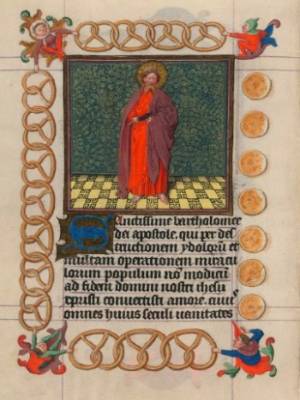 Sanctissime bartholomee
dei apostole. qui per des
tructionem ydolorū et
multam operationem miracu
lorum populum nō modicū
ad fidem domini nostri ihesu
xpisti conuertisti amore. cuius
omnes huius seculi uanitates